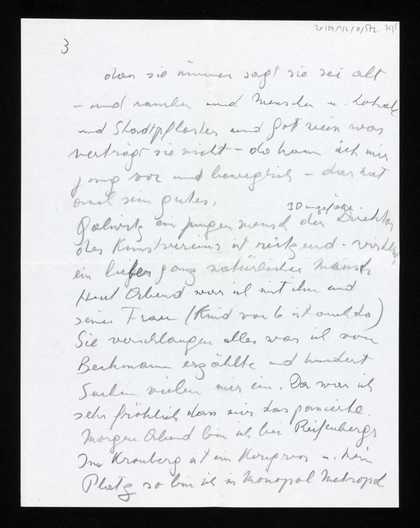 3
dass sie immer sagt sie sei alt
– und und Menschen u. Lokale
und Stadtpflaster und Gott weiss was
verträgt sie nicht – da kam ich mir
jung vor und beweglich – das hat
auch sein gutes.
ein junger Mensch der Direktor
des Kunstvereins ist reizend –
ein lieber ganz natürlicher Mensch
Heut Abend war ich mit ihm und
seiner Frau (Kind von 6 ist auch da)
Sie verschlangen alles was ich von
Beckmann erzählte und hundert
Sachen vielen mir ein. Da war ich
sehr fröhlich dass mir das passierte.
Morgen Abend bin ich bei Reifenbergs
In Kronberg ist ein u. kein
Platz so bin ich in Monopol Metropol